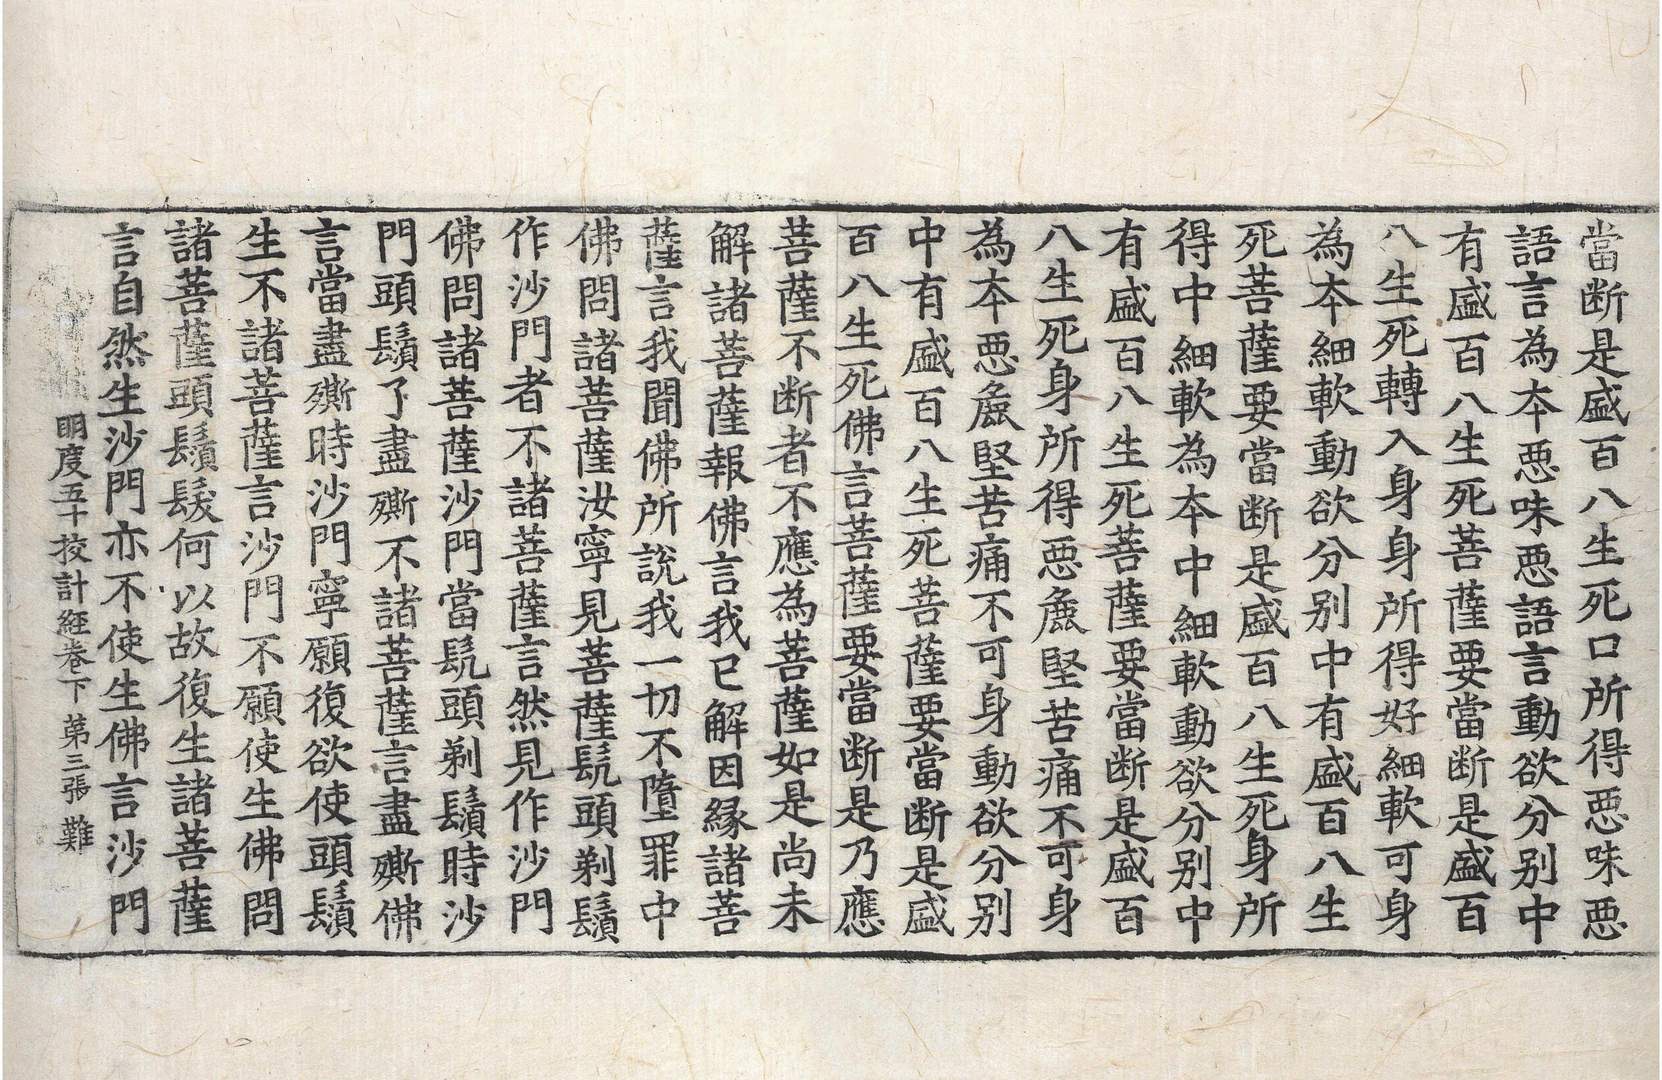 當断是盛百八生死口所得惡味惡
語言為本惡味惡語言動欲分别中
有盛百八生死菩薩要當断是盛百
八生死轉入身身所得好細軟可身
為本細軟動欲分别中有盛百八生
死菩薩要當断是盛百八生死身所
得中細軟為本中細軟動欲分别中
有盛百八生死菩薩要當断是盛百
八生死身所得惡麁堅苦痛不可身
為本惡麁堅苦痛不可身動欲分别
中有盛百八生死菩薩要當断是盛
百八生死佛言菩薩要當断是乃應
菩薩不断者不應為菩薩如是尚未
解諸菩薩報佛言我已解因縁諸菩
薩言我聞佛所說我一切不墮罪中
佛問諸菩薩汝寧見菩薩髡頭剃鬚
作沙門者不諸菩薩言然見作沙門
佛問諸菩薩沙門當髡頭剃鬚時沙
門頭鬚了盡㒋不諸菩薩言盡㒋佛
言當盡㒋時沙門寧願復欲使頭鬚
生不諸菩薩言沙門不願使生佛問
諸菩薩頭鬚髮何以故復生諸菩薩
言自然生沙門亦不使生佛言沙門
明度五十挍計經卷下 第三張 難